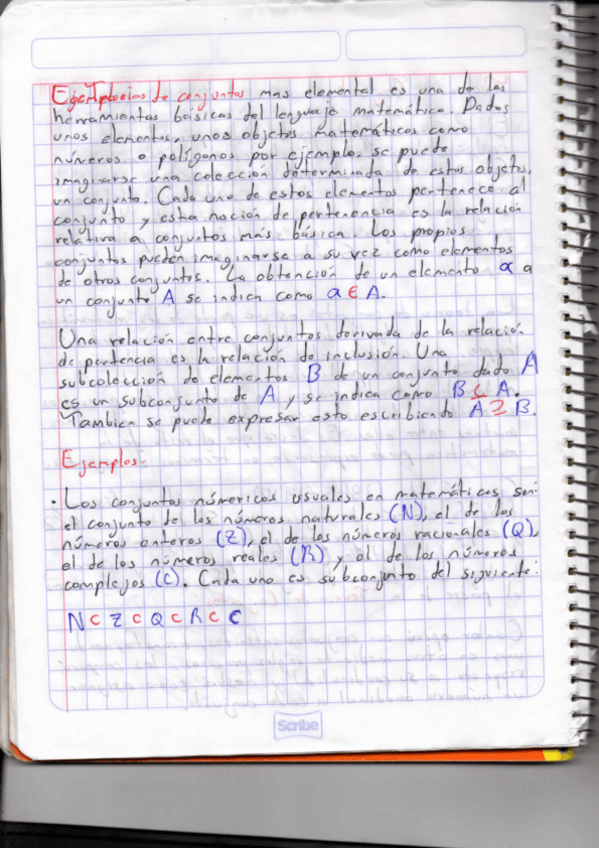 de conjuntos mas elemental es una de las
herramientas basicas del lenguaje matemático. Dados
unos elementos, unos objetos matemáticos como
números o polígonos por ejemplo, se puede
imaginarse una colección determinada de estos objetos,
un conjunto. Cada uno de estos elementos pertenece al
conjunto y esta noción de pertenencia es la relación
relativa a conjuntos más básica. Los propios
conjuntos pueden imaginarse a su vez como elementos
de otros conjuntos. La obtención de un elemento a a
un conjunto A se indica como a ∈ A.
Una relación entre conjuntos derivada de la relación
de pertencia es la relación de inclusión. Una
subcolección de elementos B de un conjunto dado A
es un subconjunto de A y se indica como B ⊆ A.
Tambien se puede expresar esto escribiendo A ⊇ B.
Ejemplos:
· Los conjuntos númericos usuales en matemáticas son:
el conjunto de los números naturales (N), el de los
números enteros (Z), el de los números racionales (Q),
el de los números reales (R) y el de los números
complejos (C). Cada uno es subconjunto del siguiente:
N ⊂ Z ⊂ Q ⊂ R ⊂ C
Scribe